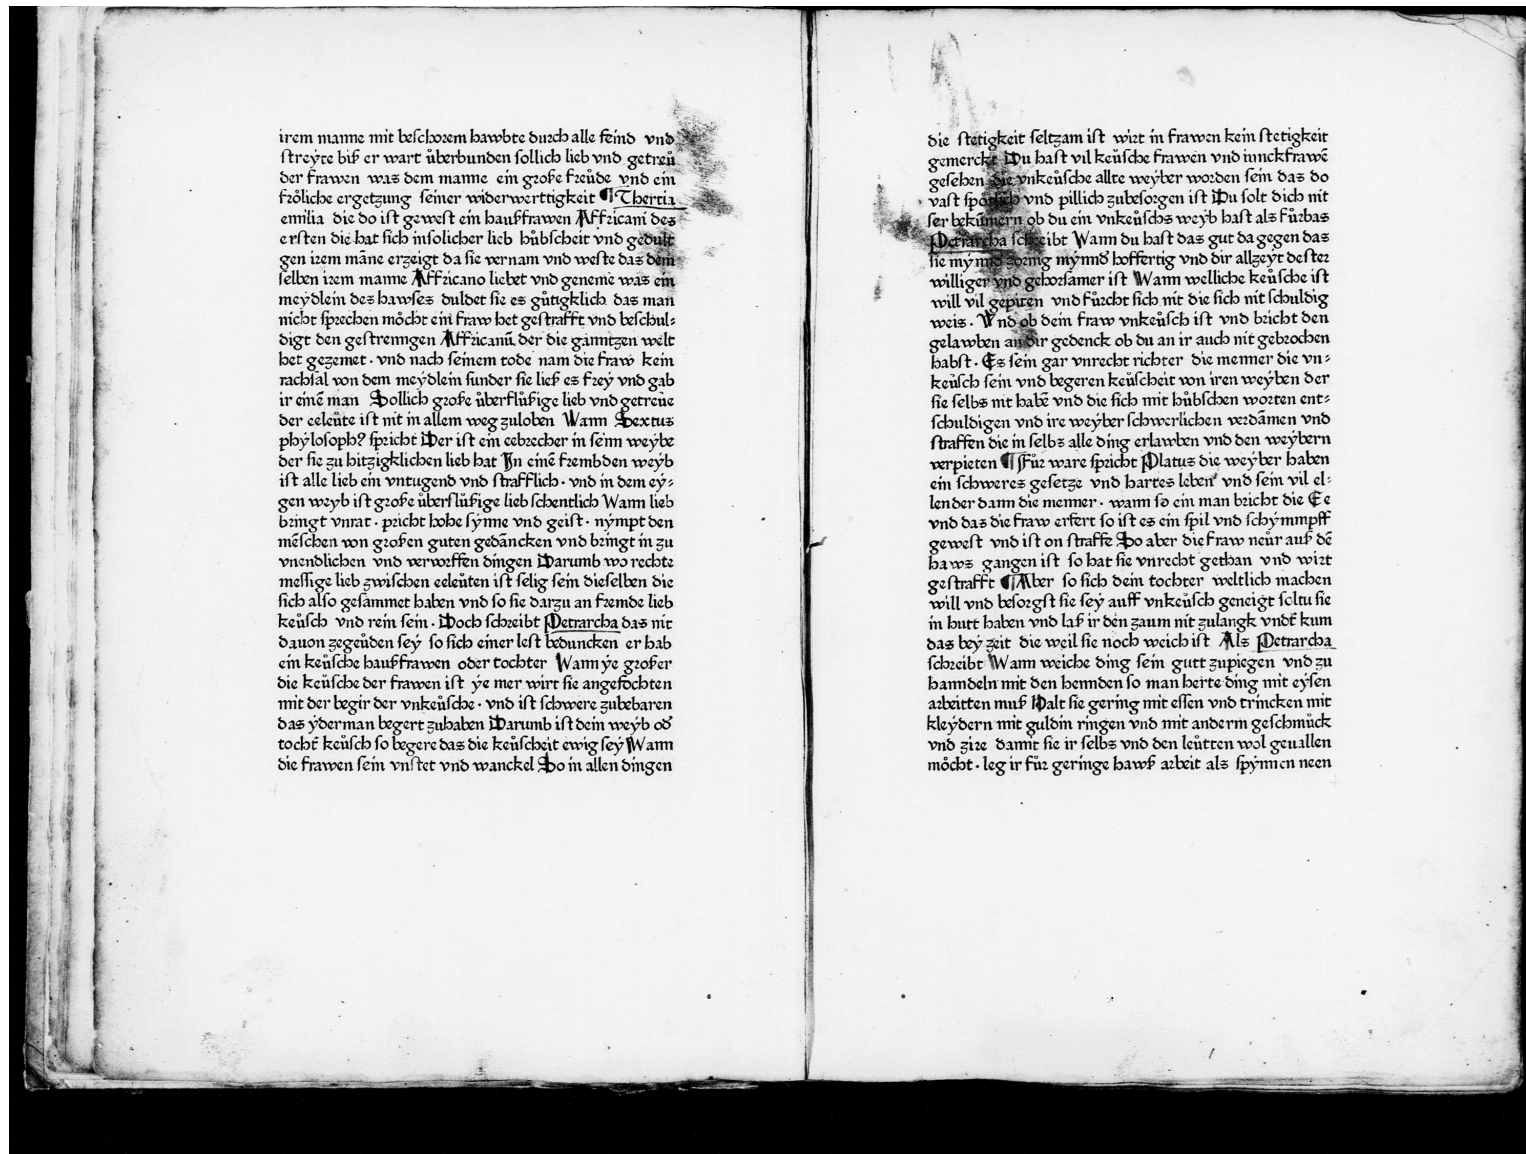 irem manne mit beschorem hawbte durch alle feind vnd
streyte biß er wart uͤberbunden sollich lieb vnd getreuͤ
der frawen was dem manne ein große freuͤde vnd ein
froͤliche ergetzung seiner widerwerttigkeit ¶ Thertia
emilia die do ist gewest ein haußfrawen Affricani des
ersten die hat sich insolicher lieb huͤbscheit vnd gedult
gen irem mãne erzeigt da sie vernam vnd weste das dem
selben irem manne Affricano liebet vnd geneme was ein
meydlein des hawses duldet sie es guͤtigklich das man
nicht sprechen moͤcht ein fraw het gestrafft vnd beschul⸗
digt den gestrenngen Affricanũ der die ganntzen welt
het gezemet · vnd nach seinem tode nam die fraw kein
rachsal von dem meydlein sunder sie ließ es frey vnd gab
ir einẽ man Sollich große uͤberfluͤßige lieb vnd getreuͤe
der eeleuͤte ist nit in allem weg zuloben Wann Sextus
phylosoph? spricht Der ist ein eebrecher in seinn weybe
der sie zu hitzigklichen lieb hat In einẽ frembden weyb
ist alle lieb ein vntugend vnd strafflich · vnd in dem ey⸗
gen weyb ist große uͤberfluͤßige lieb schentlich Wann lieb
bringt vnrat · pricht hohe synne vnd geist · nympt den
mẽschen von großen guten gedãncken vnd bringt in zu
vnendlichen vnd verworffen dingen Darumb wo rechte
messige lieb zwischen eeleuͤten ist selig sein dieselben die
sich also gesammet haben vnd so sie darzu an fremde lieb
keuͤsch vnd rein sein · Doch schreibt Petrarcha das nit
dauon zegeuͤden sey so sich einer lest beduncken er hab
ein keuͤsche haußfrawen oder tochter Wann ye großer
die keuͤsche der frawen ist ye mer wirt sie angefochten
mit der begir der vnkeuͤsche · vnd ist schwere zubebaren
das yderman begert zuhaben Darumb ist dein weyb od̃
tocht̃ keuͤsch so begere das die keuͤscheit ewig sey Wann
die frawen sein vnstet vnd wanckel So in allen dingen
die stetigkeit seltzam ist wirt in frawen kein stetigkeit
gemerckt Du hast vil keuͤsche frawen vnd iunckfrawẽ
gesehen die vnkeuͤsche allte weyber worden sein das do
vast spoͤtlich vnd pillich zubesorgen ist Du solt dich nit
ser bekuͤmern ob du ein vnkeuͤschs weyb hast als fuͤrbas
Petrarcha schreibt Wann du hast das gut da gegen das
sie mynnd zornig mynnd hoffertig vnd dir allzeyt dester
williger vnd gehorsamer ist Wann welliche keuͤsche ist
will vil gepiten vnd fuͤrcht sich nit die sich nit schuldig
weis · Vnd ob dein fraw vnkeuͤsch ist vnd bricht den
gelawben an dir gedenck ob du an ir auch nit gebrochen
habst · Es sein gar vnrecht richter die menner die vn⸗
keuͤsch sein vnd begeren keuͤscheit von iren weyben der
sie selbs nit habẽ vnd die sich mit huͤbschen worten ent⸗
schuldigen vnd ire weyber schwerlichen verdãmen vnd
straffen die in selbs alle ding erlawben vnd den weybern
verpieten ¶ Fuͤr ware spricht Platus die weyber haben
ein schweres gesetze vnd hartes leben vnd sein vil el⸗
lender dann die menner · wann so ein man bricht die Ee
vnd das die fraw erfert so ist es ein spil vnd schymmpff
gewest vnd ist on straffe So aber die fraw neuͤr auß dẽ
haws gangen ist so hat sie vnrecht gethan vnd wirt
gestrafft ¶ Aber so sich dein tochter weltlich machen
will vnd besorgst sie sey auff vnkeuͤsch geneigt soltu sie
in hutt haben vnd laß ir den zaum nit zulangk vndt̃ kum
das bey zeit die weil sie noch weich ist Als Petrarcha
schreibt Wann weiche ding sein gutt zupiegen vnd zu
hanndeln mit den hennden so man herte ding mit eysen
arbeitten muß Halt sie gering mit essen vnd trincken mit
kleydern mit guldin ringen vnd mit anderm geschmuͤck
vnd zire damit sie ir selbs vnd den leuͤtten wol geuallen
moͤcht · leg ir fuͤr geringe hawß arbeit als spynnen neen